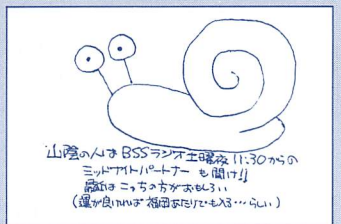 山陰の人は BSSラジオ土曜夜 11:30からの
ミッドナイトパートナー も聞け!!
最近はこっちの方がおもしろい
(運が良いれば 福岡あたりでも入る…らしい)